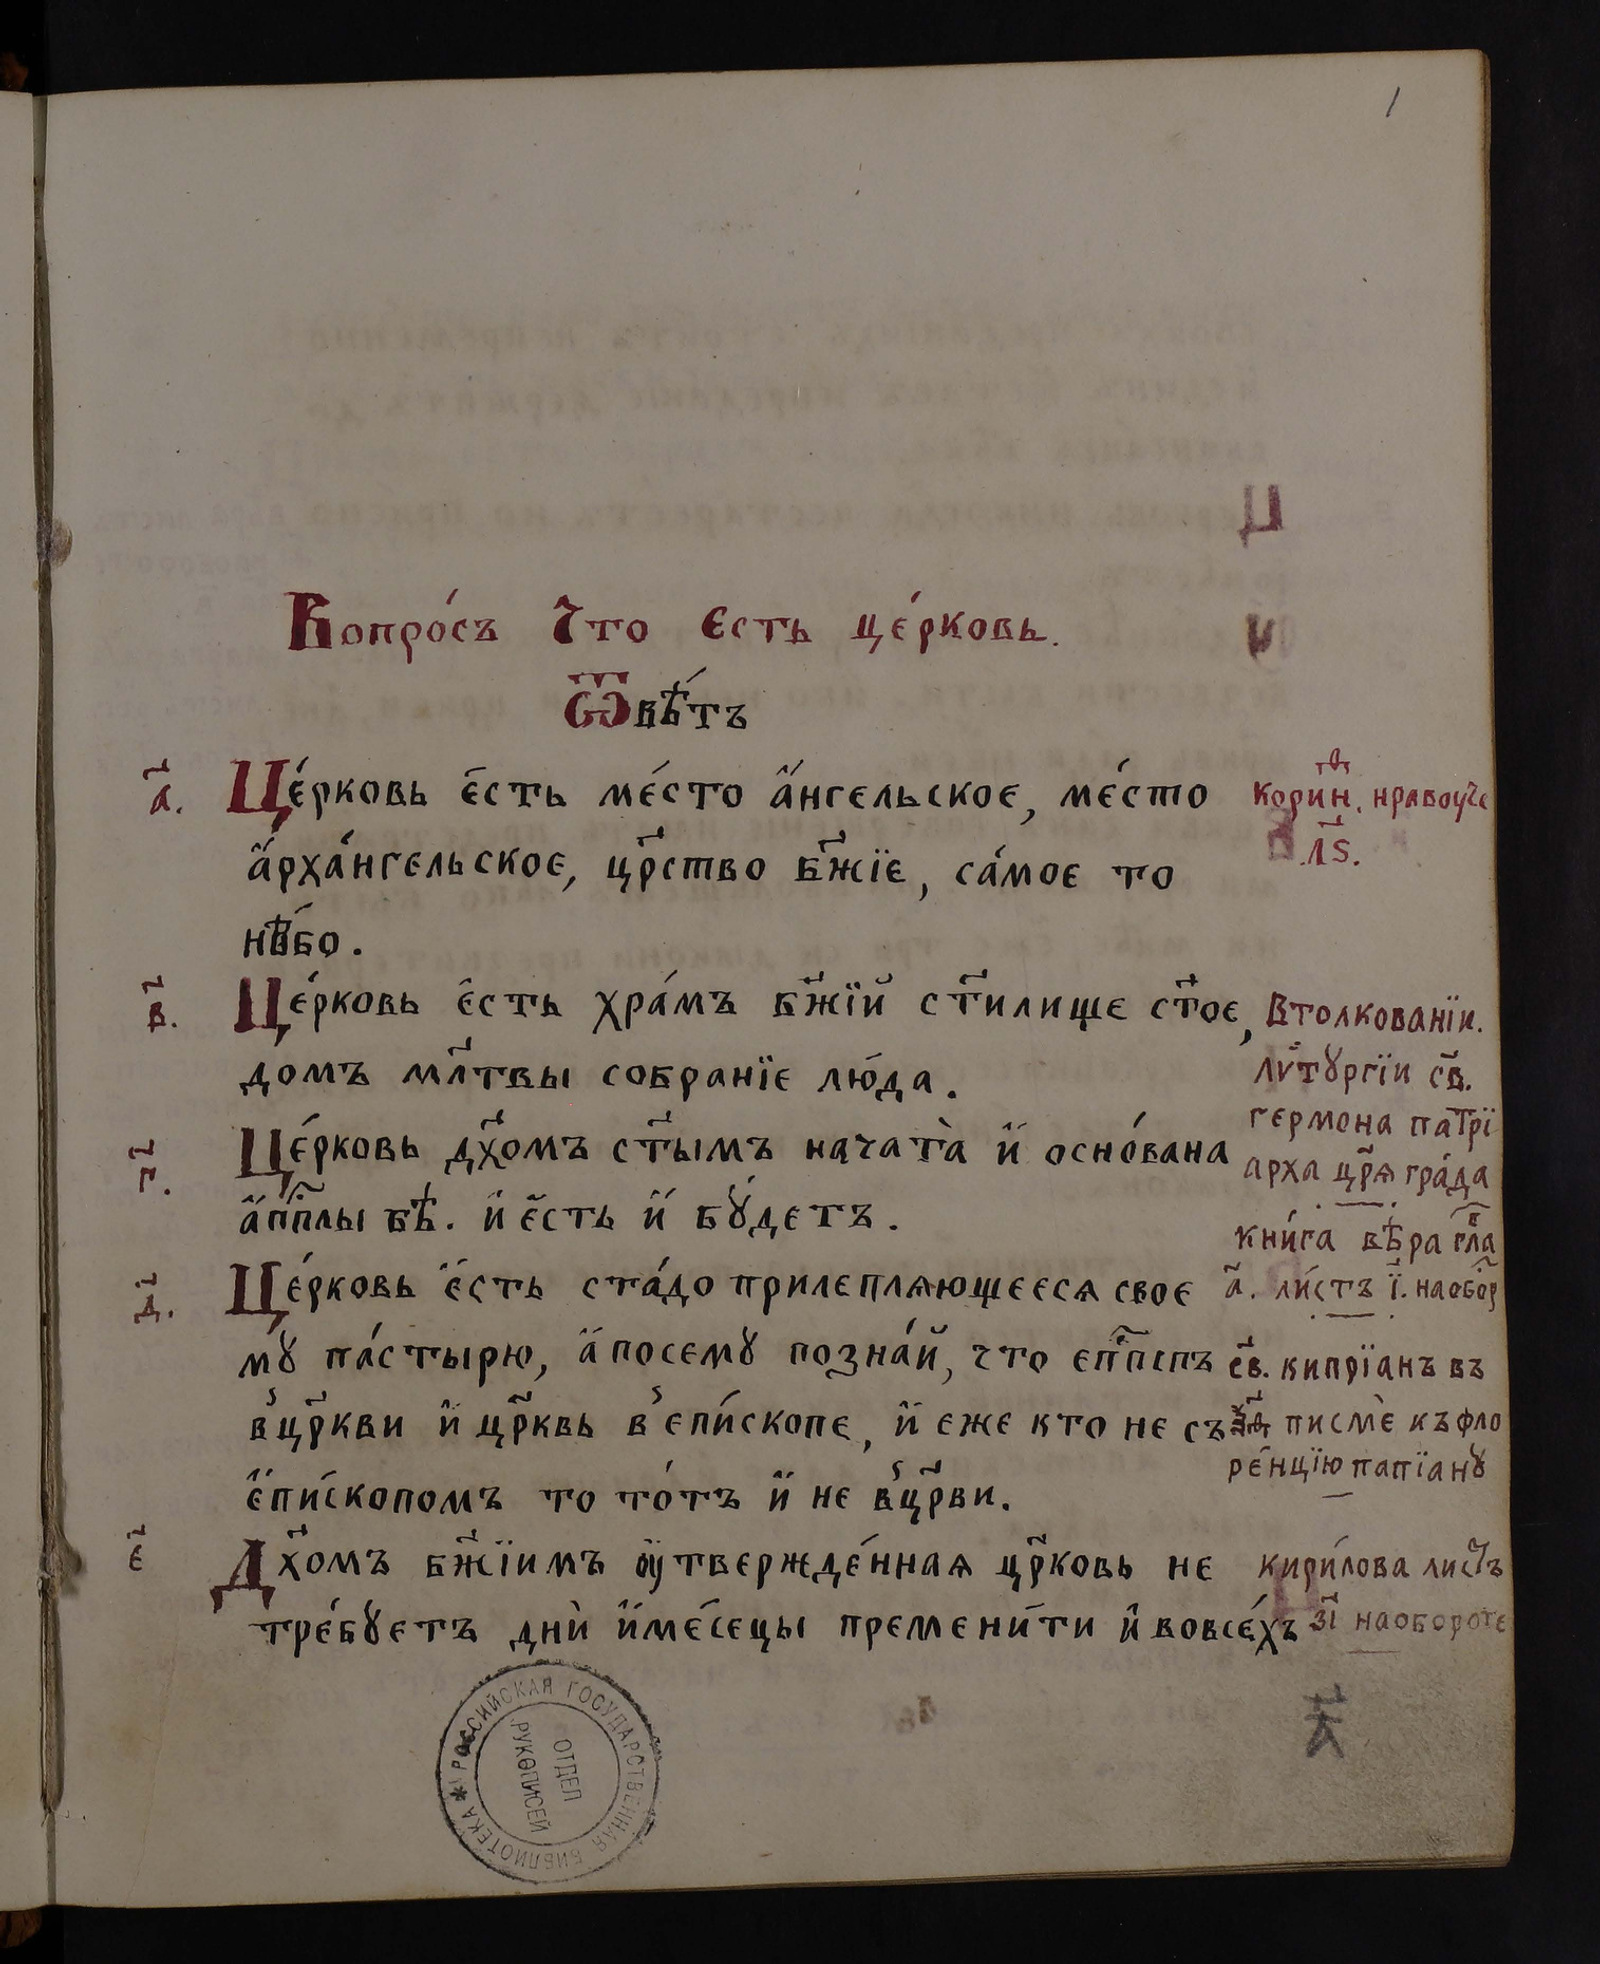 1
Вопро́съ Что Єсть це́рковь.
Ѿвѣ́тъ
а҃. Це́рковь є҆́сть ме́сто а҆́нгельскоє, ме́сто
а҆рха́нгельскоє, цр҃ство бж҃їє, са́моє то
нѣ́бо.
корин. нравоуче
л҃ѕ.
в҃. Це́рковь є҆сть хра́мъ бж҃їй ст҃илище ст҃оє,
домъ мл҃твы собранїє лю́да.
Втолкованїи.
лѵтꙋргїи св҃.
гермона патрї
арха цр҃ѧ гра́да
г҃. Це́рковь дх҃омъ ст҃ымъ начата̀ и҆ осно́вана
а҆пп҃лы бѣ. и҆ є҆сть и҆ бꙋ́детъ.
кни́га вѣра гла
а҃. ли́стъ ї҃. наобор
д҃. Це́рковь є҆́сть ста́до прилеплѧющеесѧ своє
мꙋ па́стырю, а҆ посемꙋ позна́й, что єп҃пспъ
вцр҃кви и҆ цр҃квь в єпи́скопє, и҆ єже кто не съ
є҆пи́скопомъ то то́тъ и҆ не вцр҃ви.
св҃. кипрїанъ въ
писмѐ къ фло
ре́нцїю папїанꙋ
є҃ Дх҃омъ бж҃їимъ ѹтвержде́ннаѧ цр҃ковь не
тре́бꙋєтъ днѝ и҆ме́сецы премени́ти и҆ вовсе́хъ
кири́лова листъ
з҃і наобороте
РОССИЙСКАЯ ГОСУДАРСТВЕННАЯ БИБЛИОТЕКА *
ОТДЕЛ
РУКОПИСЕЙ